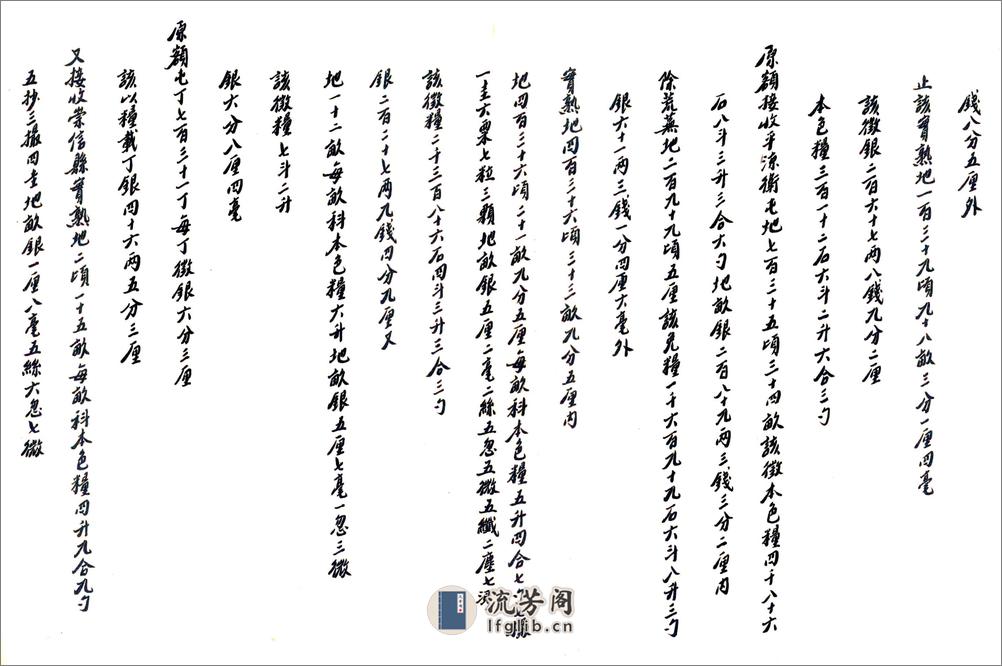 錢八分五厘外
止該實熟地一百三十九頃九十八畝三分一厘四毫
該徵銀二百六十七两八錢九分二厘
本色糧三百一十二石六斗二升六合三勺
原額接收平涼衛屯地七百三十五頃三十四畝該徵本色糧四千八十六
石八斗三升三合六勺地畝銀二百八十九两三錢三分二厘内
除荒蕪地二百九十九頃五厘該免糧一千六百九十九石六斗八升三勺
銀六十一两三錢一分四厘六毫外
實熟地四百三十六頃三十三畝九分五厘内
地四百三十六頃二十一畝九分五厘每畝科本色糧五升四合七勺
一圭六粟七粒三顆地畝銀五厘二毫二絲五忽五微五纖二塵七渓
該徵糧二千三百八十六石四斗三升三合三勺
銀二百二十七两九錢四分九厘又
地一十二畝每畝科本色糧六升地畝銀五厘七毫一忽三微
該徵糧七斗二升
銀六分八厘四毫
原額屯丁七百三十一丁每丁徵銀六分三厘
該以糧載丁銀四十六两五分三厘
又接收崇信縣實熟地二頃一十五畝每畝科本色糧四升九合九勺
五抄三撮四圭地畝銀一厘八毫五絲六忽七微
流芳阁
lfglib.cn